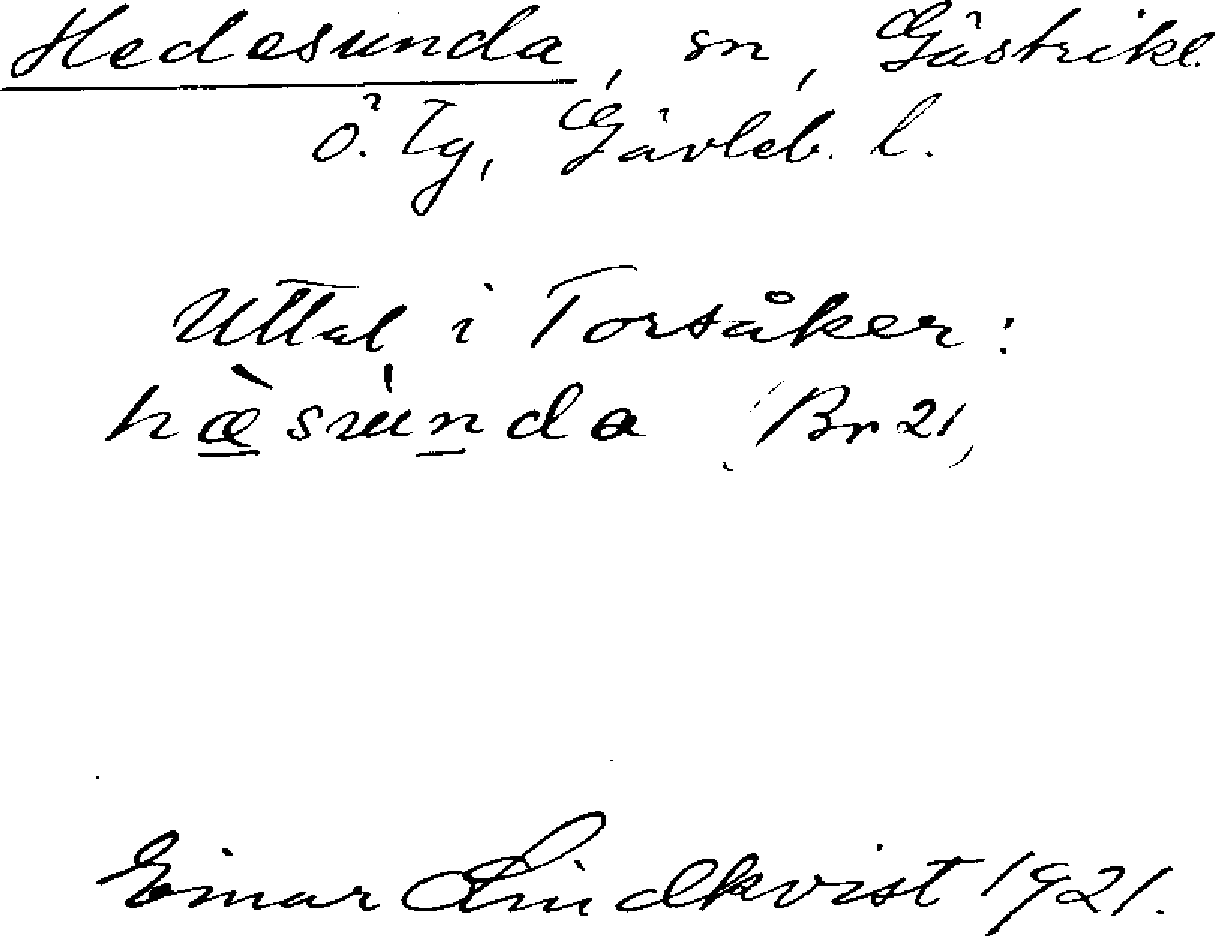 Hedesunda, sn, Gästrikl.
Ö. Tg, Gävleb. l.
Uttal i Torsåker:
hæ̀sùnda (Br 21)
Einar Lindkvist 1921.